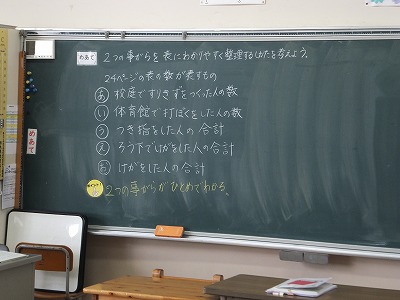 めあて 2つの事がらを表にわかりやすく整理するしかたを考えよう。
24ページの表の数が表すもの
あ 校庭ですりきずをつくった人の数
い 体育館で打ぼくをした人の数
う つき指をした人の合計
え ろう下でけがをした人の合計
お けがをした人の合計
2つの事がらがひとめでわかる。
めあて